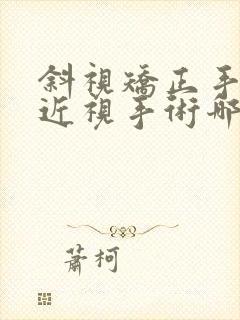 斜視矯正手
近視手術哪
蕭柯